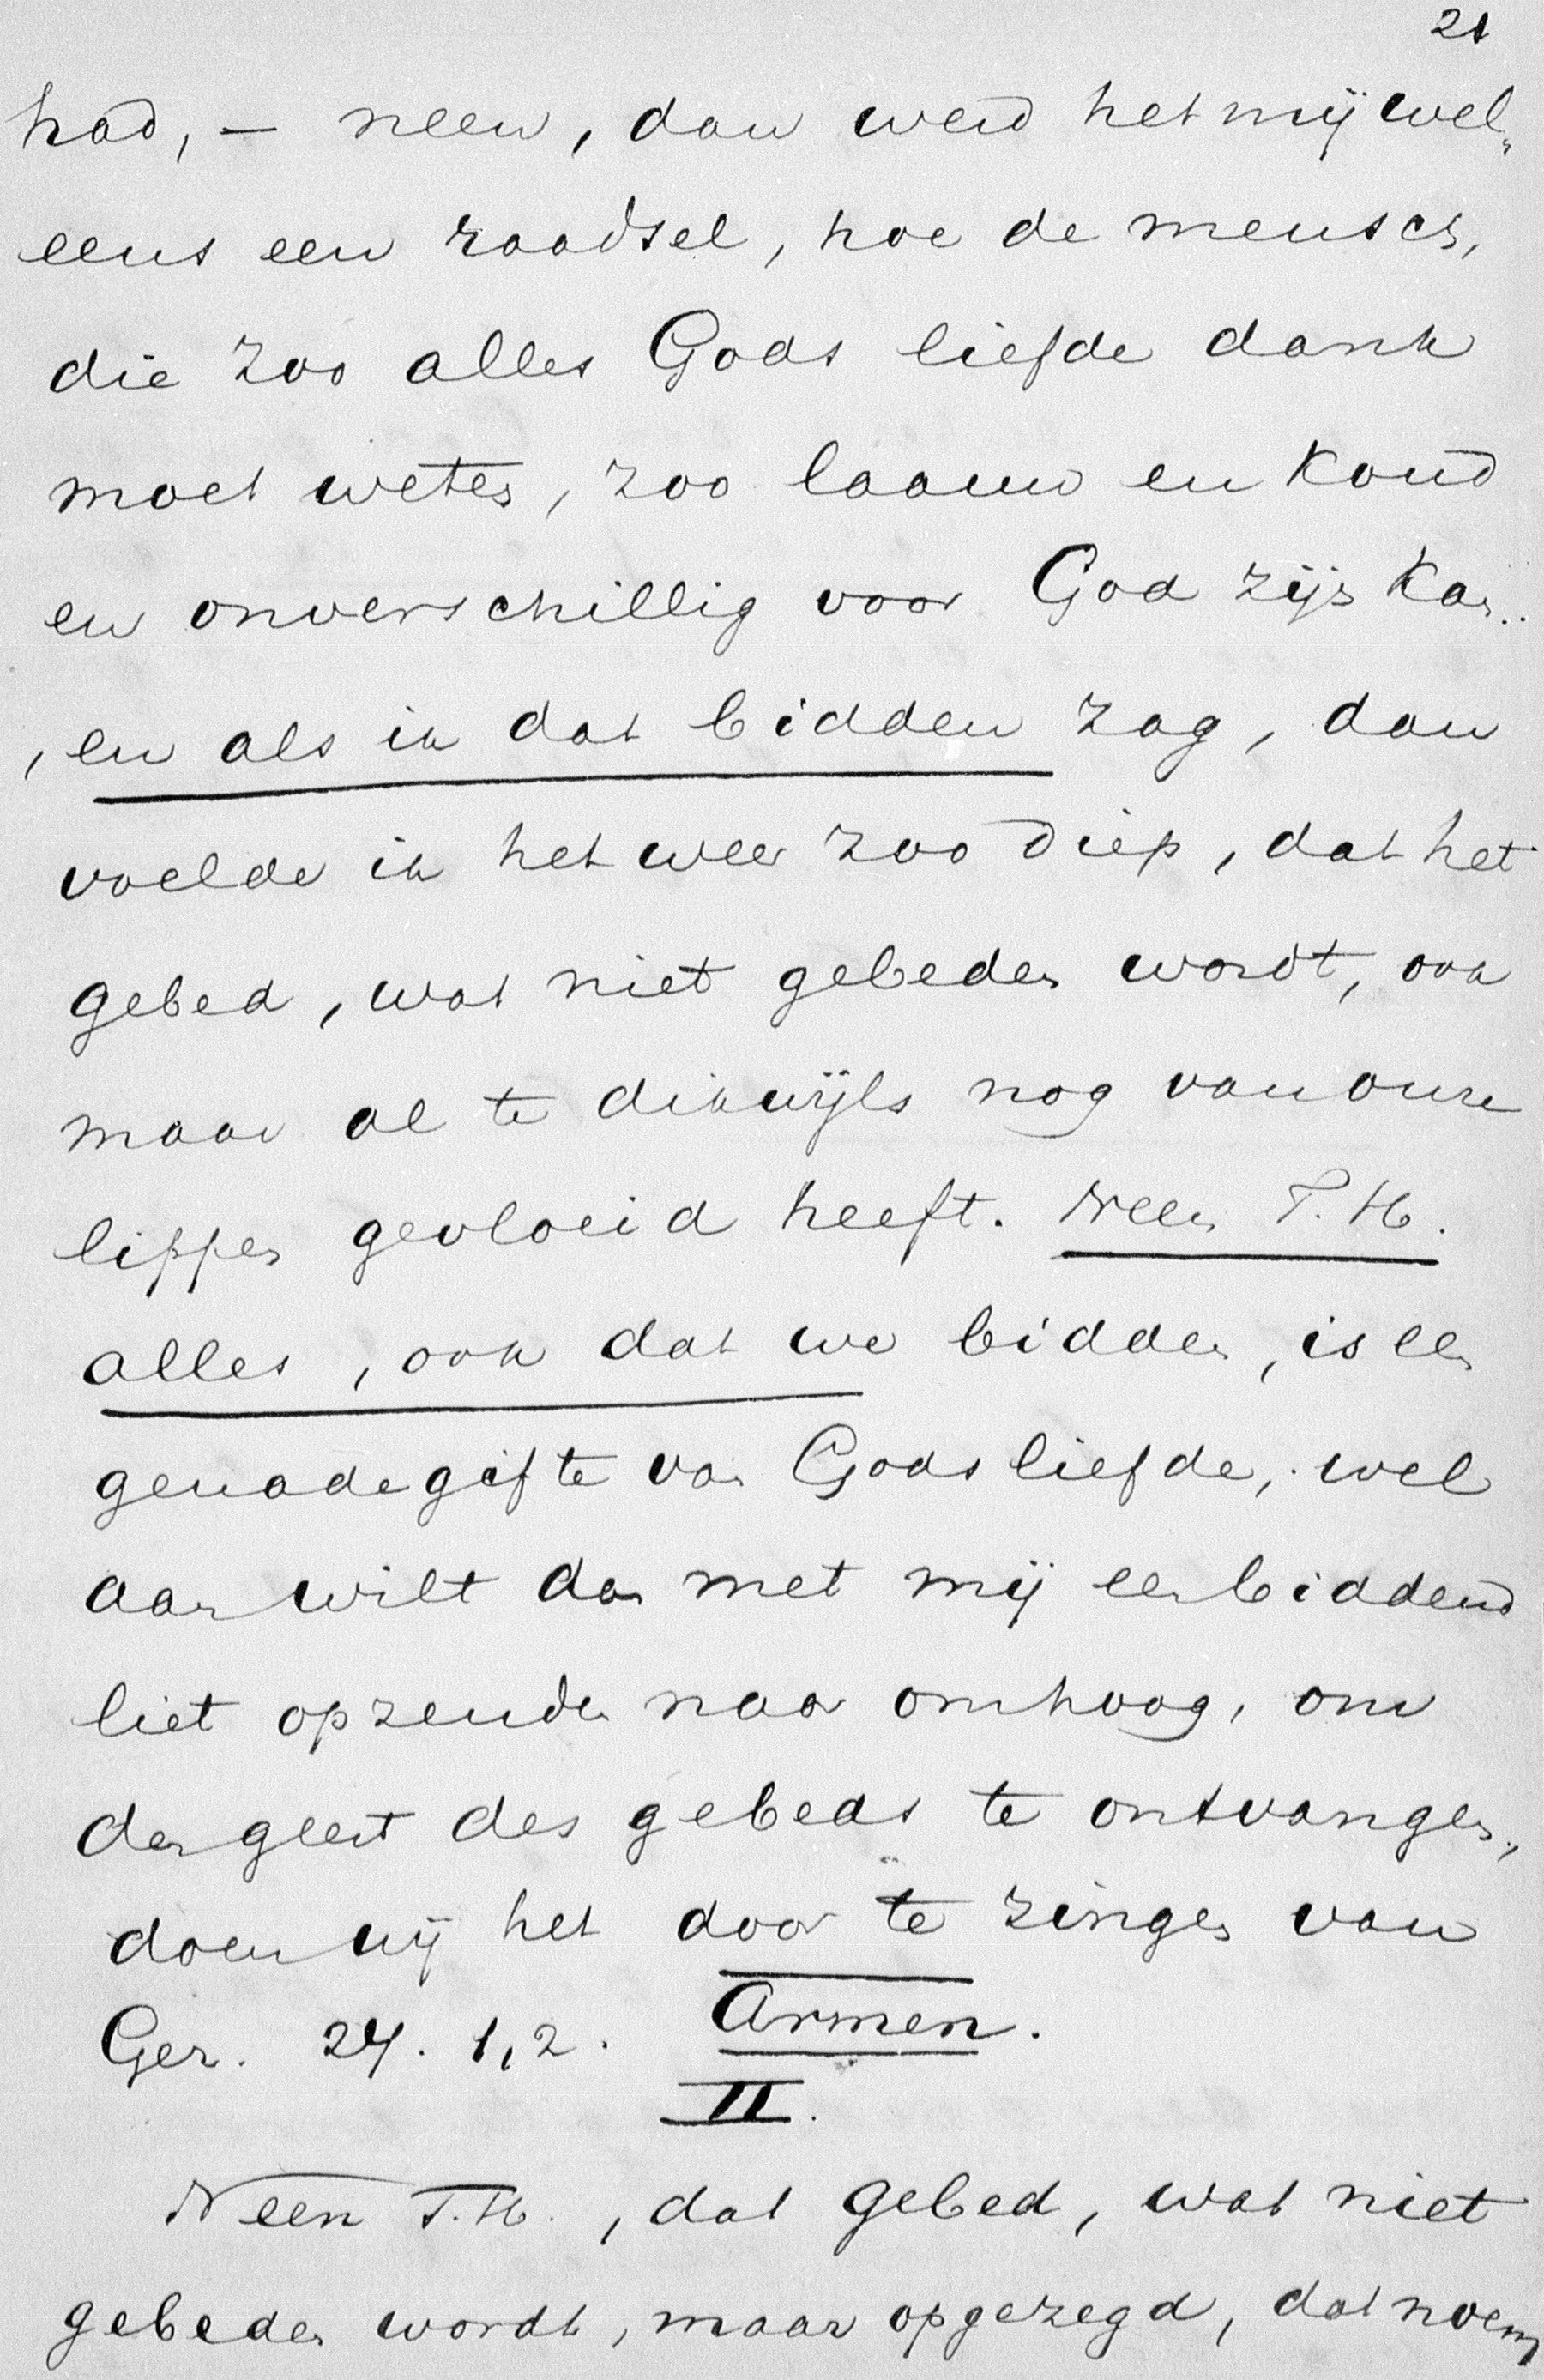 21
had, – neen, dan werd het mij wel„
eens een raadsel, hoe de mensch,
die zoo alles Gods liefde dank
moet weten, zoo laauw en koud
en onverschillig voor God zijn kan..
, en als ik dat bidden zag, dan
voelde ik het weer zoo diep, dat het
gebed, wat niet gebeden wordt, ook
maar al te dikwijls nog van onze
lippen gevloeid heeft. Neen T. H.
alles, ook dat we bidden, is een
genadegifte van Gods liefde, wel
aan wilt dan met mij een biddend
liet opzenden naar omhoog, om
den geest des gebeds te ontvangen,
doen wij het door te zingen van
Gez. 24. 1,2. Armen.
II.
Neen T. H., dat gebed, wat niet
gebeden wordt, maar opgezegd, dat noem